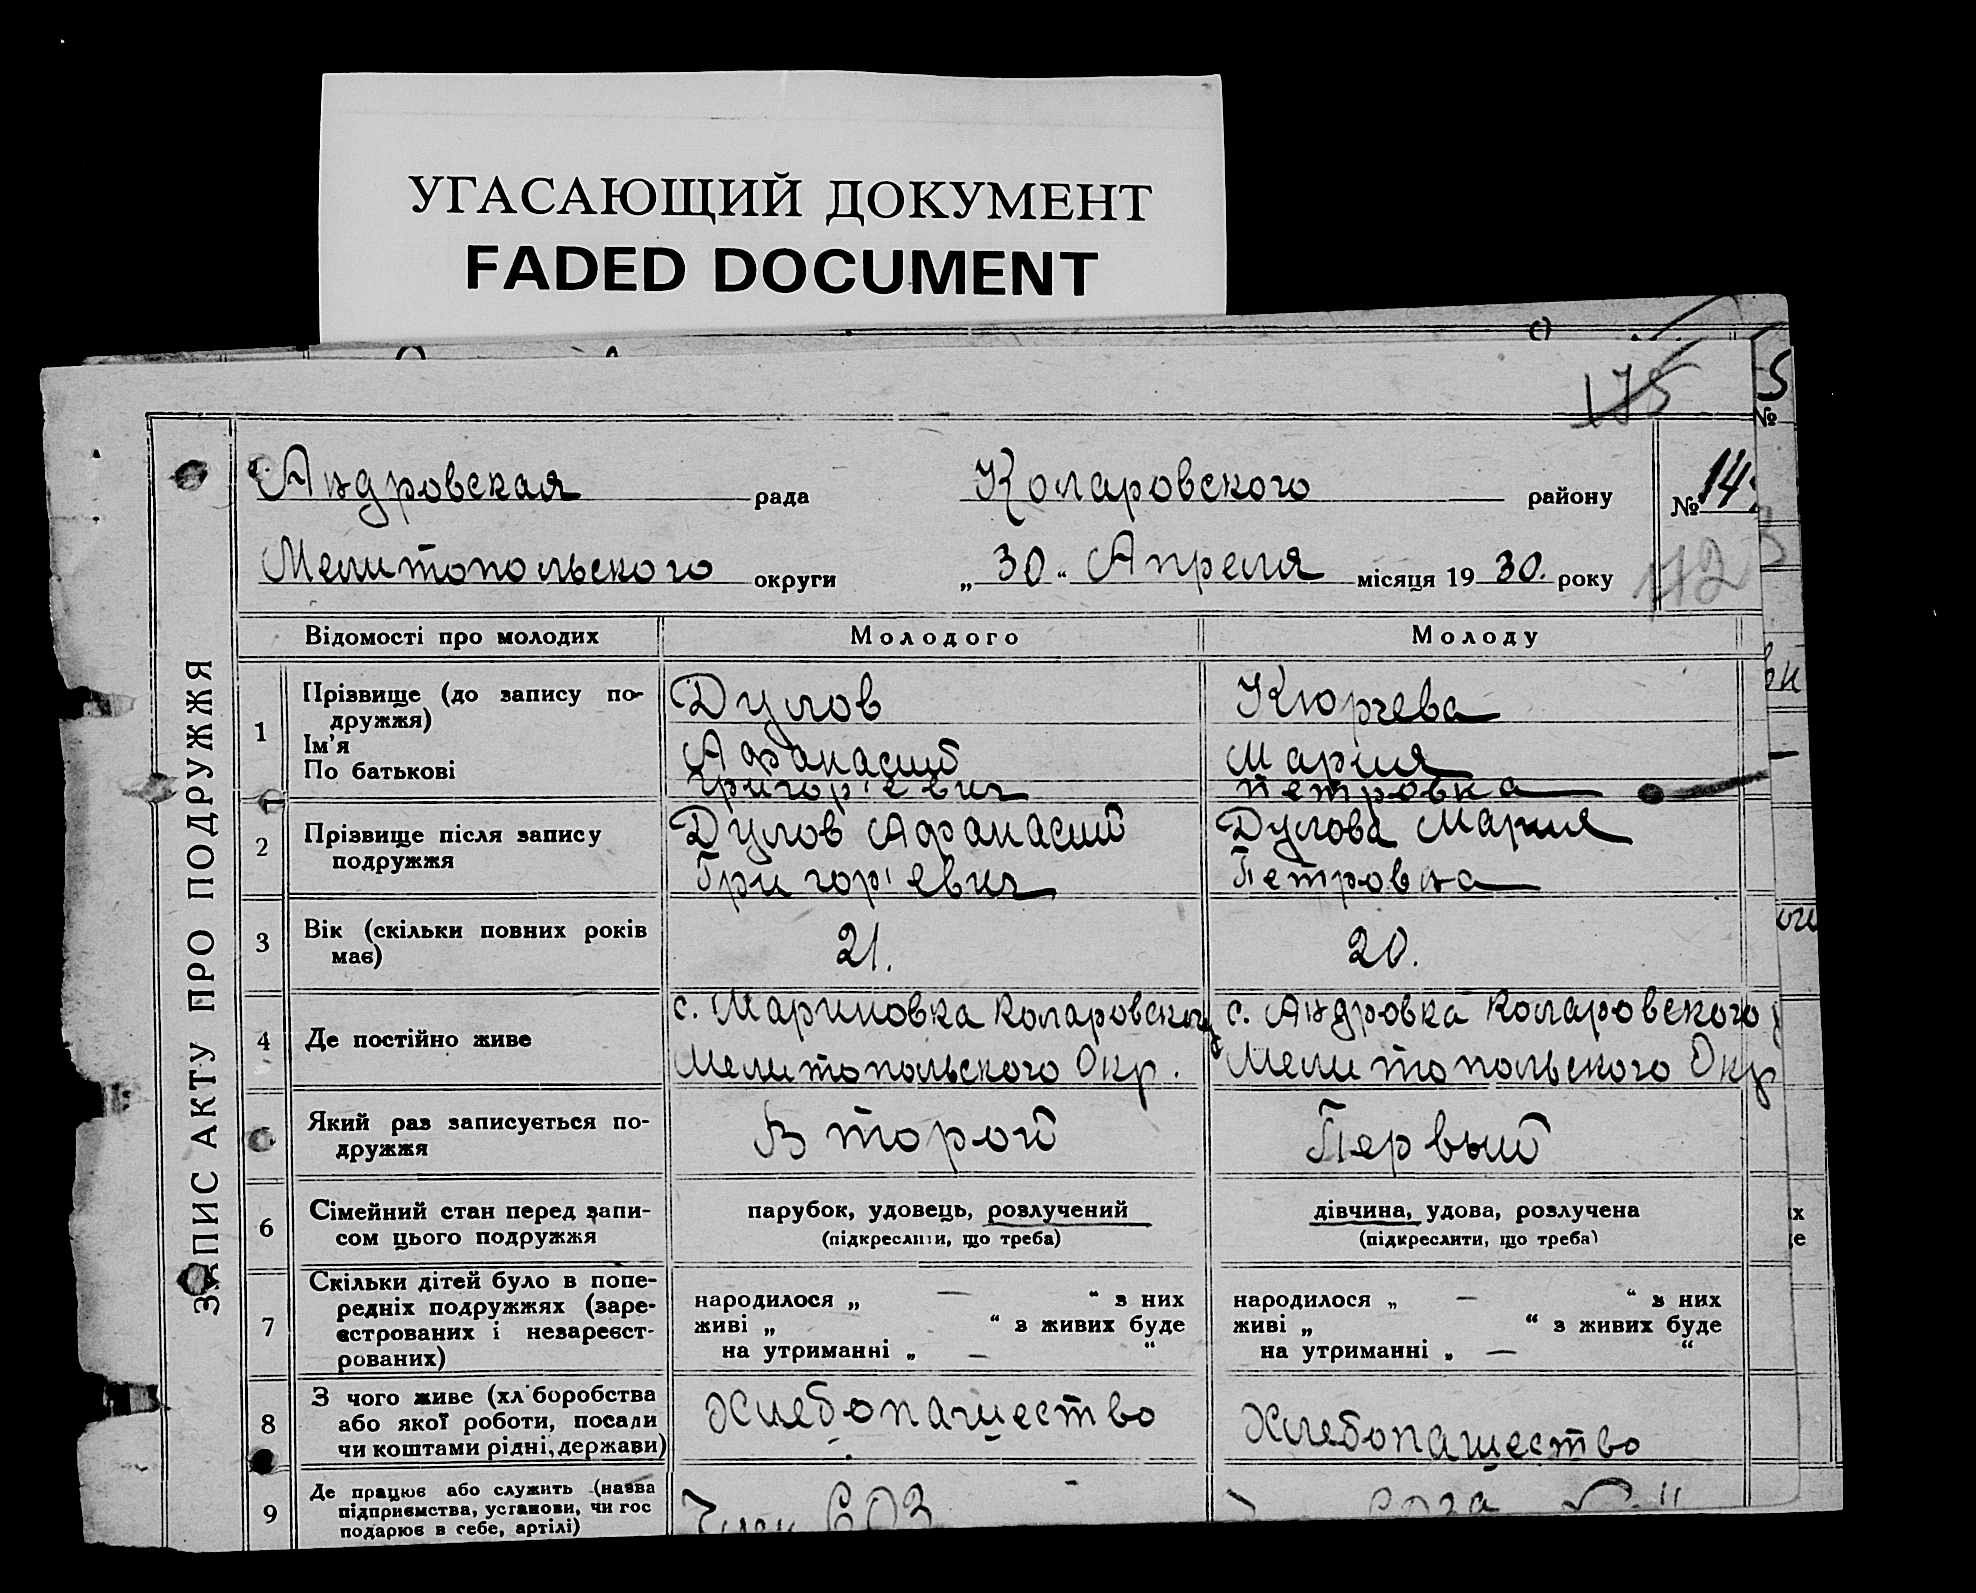 УГАСАЮЩИЙ ДОКУМЕНТ
FADED DOCUMENT
175
Андровская рада Коларовского району № 14
Мелитопольского округи „ 30 “ Апреля місяця 19 30. року
172
ЗАПИС АКТУ ПРО ПОДРУЖЖЯ
Відомості про молодих Молодого Молоду
1 Прізвище (до запису по-
дружжя)
Ім'я
По батькові
Дулов Кюрчева
Афанасий Мария
Григор'евич Петровна
2 Прізвище після запису
подружжя
Дулов Афанасий Дулова Мария
Григор'евич Петровна
3 Вік (скільки повних років
має)
21. 20.
4 Де постійно живе
с. Мариновка Коларовского с. Андровка Коларовского
Мелитопольского Окр. Мелитопольского Окр
Який раз записується по-
дружжя
Второй Первый
6 Сімейний стан перед запи-
сом цього подружжя
парубок, удовець, розлучений дівчина, удова, розлучена
(підкреслити, що треба) (підкреслити, що треба)
7 Скільки дітей було в попе-
редніх подружжях (заре-
єстрованих і незареєст-
рованих)
народилося „ — “ з них народилося „ — “ з них
живі „ “ з живих буде живі „ “ з живих буде
на утриманні „ — “ на утриманні „ — “
8 З чого живе (хліборобства
або якої роботи, посади
чи коштами рідні, держави)
Хлебопашество Хлебопашество
9 Де працює або служить (назва
підприємства, установи, чи гос
подарює в себе, артілі)
Член СОЗ